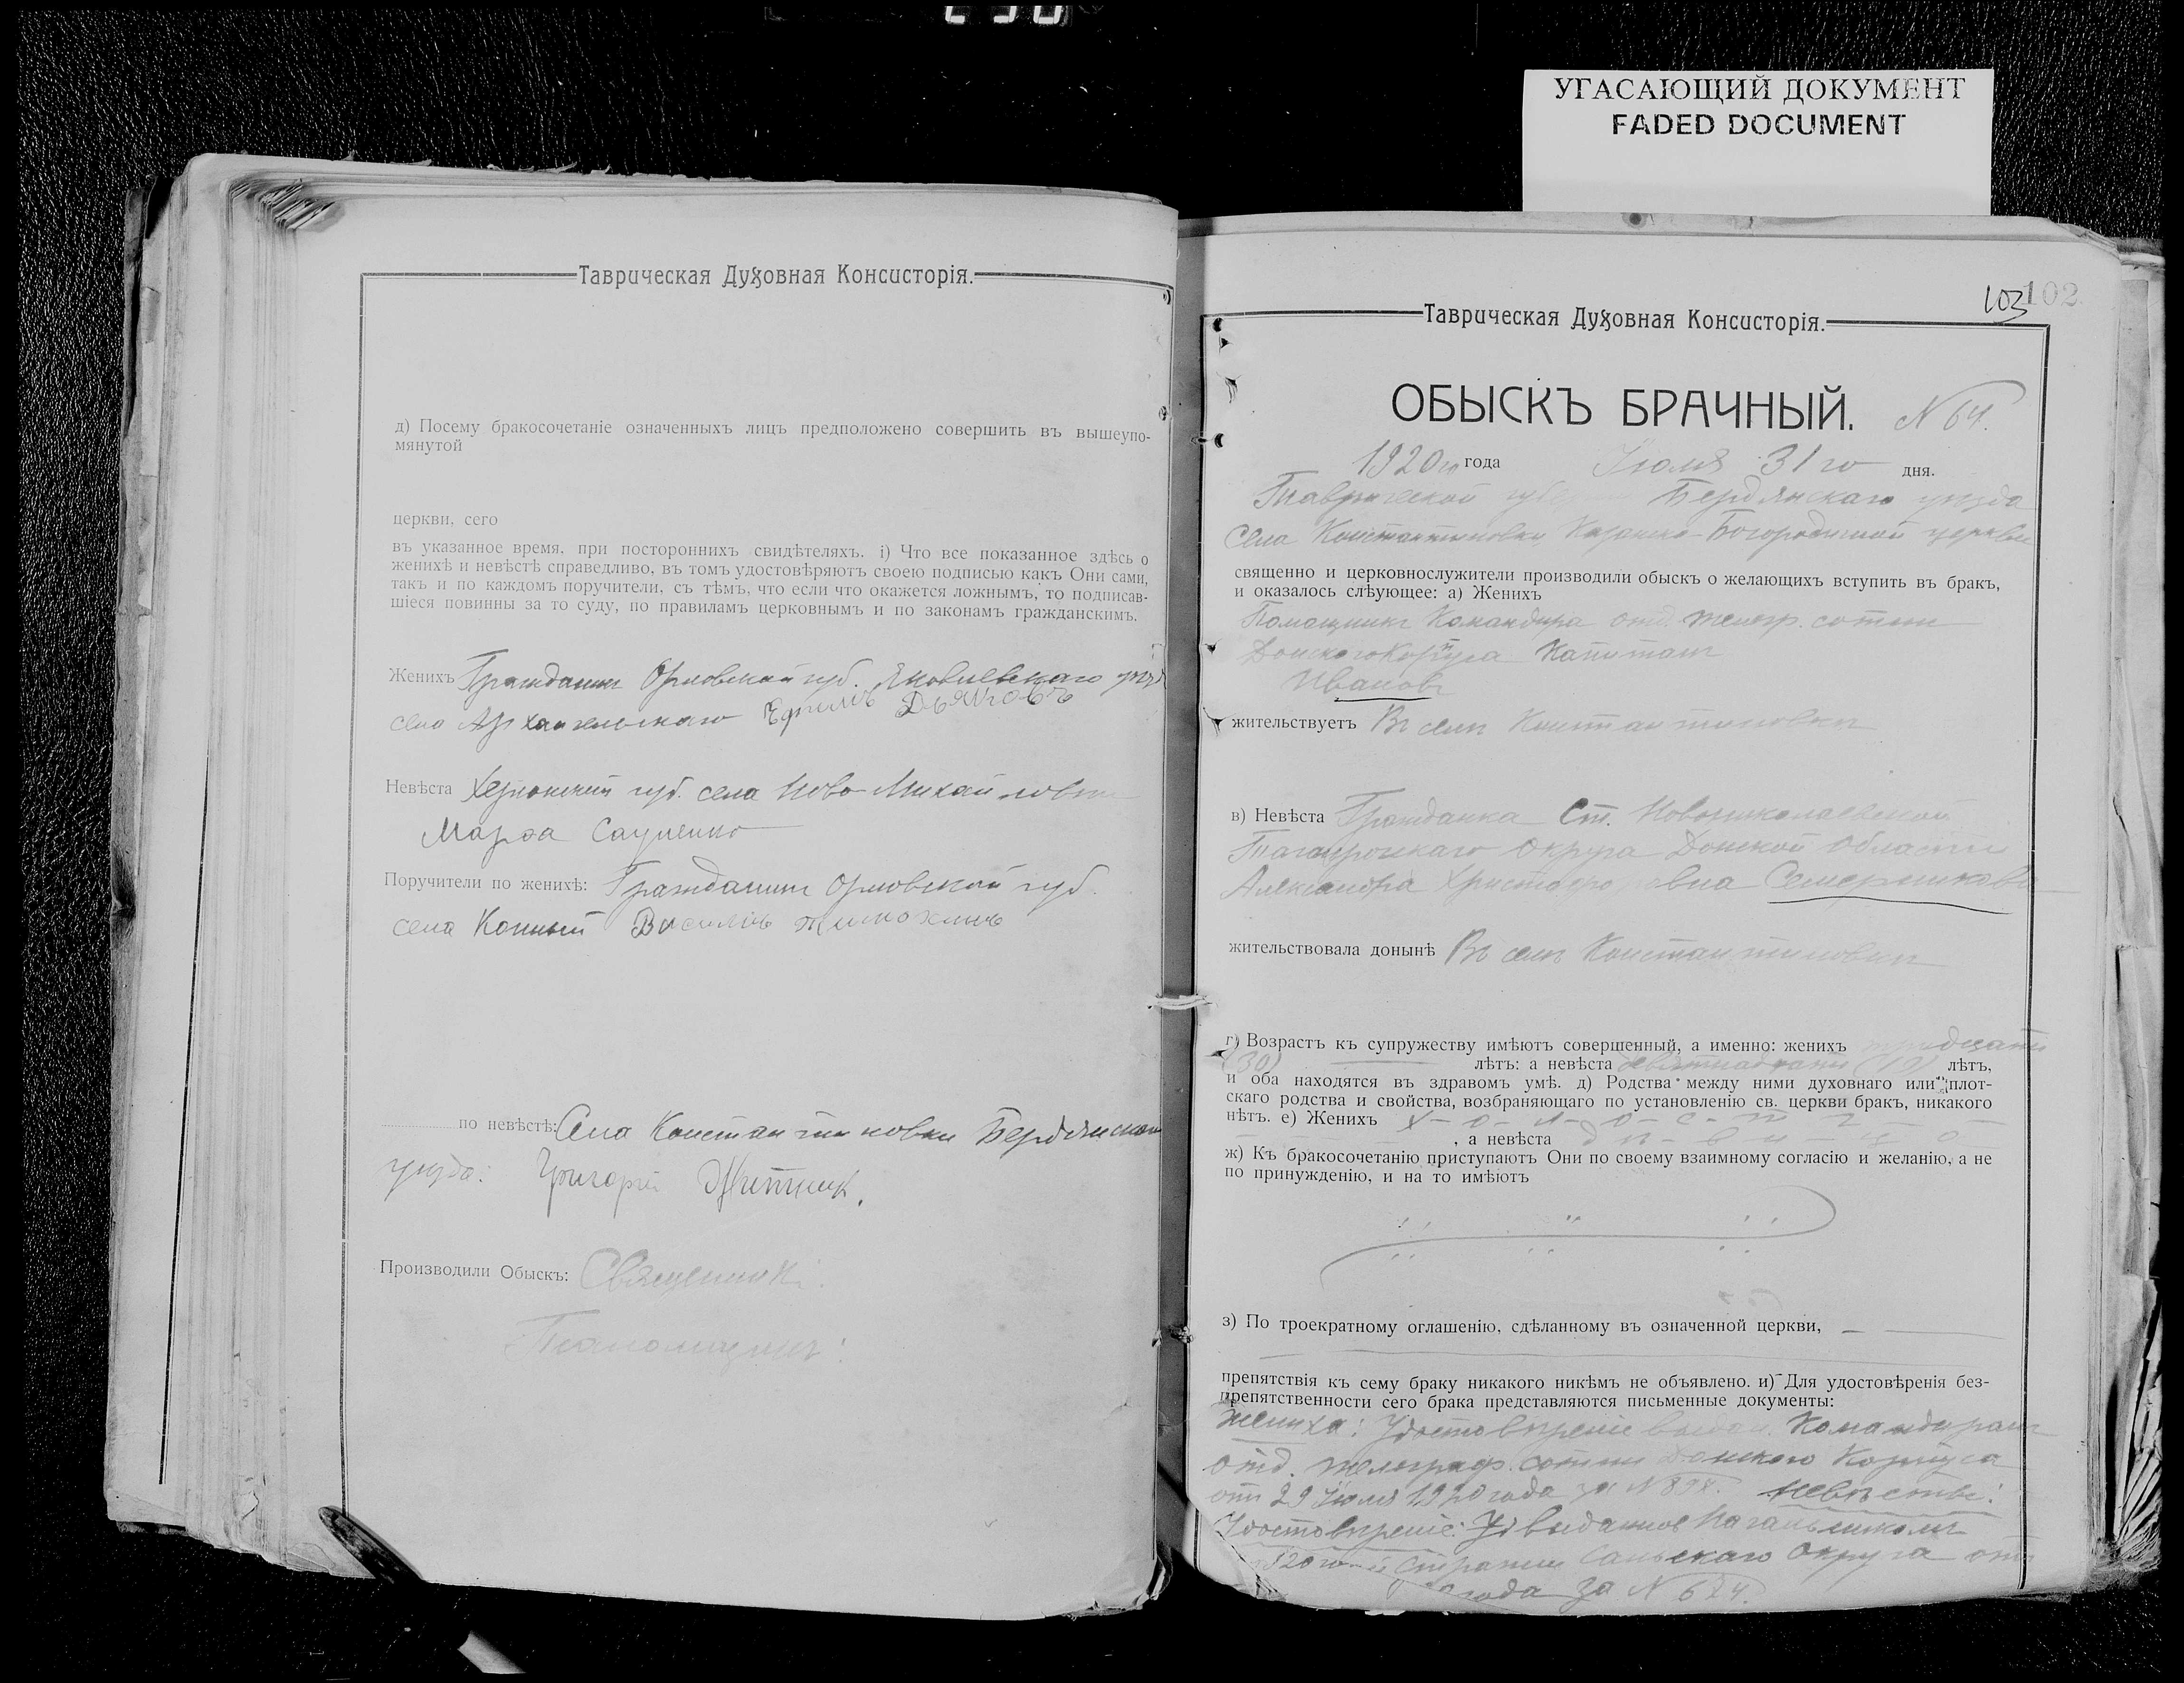 УГАСАЮЩИЙ ДОКУМЕНТ
FADED DOCUMENT
Таврическая Духовная Консисторія.
д) Посему бракосочетаніе означенныхъ лицъ предположено совершить въ вышеупо-
мянутой
церкви, сего
въ указанное время, при постороннихъ свидѣтеляхъ. і) Что все показанное здѣсь о
женихѣ и невѣстѣ справедливо, въ томъ удостовѣряютъ своею подписью какъ Они сами,
такъ и по каждомъ поручители, съ тѣмъ, что если что окажется ложнымъ, то подписав-
шіеся повинны за то суду, по правиламъ церковнымъ и по законамъ гражданскимъ.
Женихъ Гражданинъ Орловской губ.
села Архангельскаго Ефимъ Дьяковъ
Невѣста Херсонской губ. села Ново-Михайловки
Марфа
Поручители по женихѣ: Гражданинъ Орловской губ.
села
по невѣстѣ: Села Константиновки Бердянскаго
уѣзда: Григорій
Производили Обыскъ: Священникъ
102
103
Таврическая Духовная Консисторія.
ОБЫСКЪ БРАЧНЫЙ. N 64.
1920го года Іюля 31го дня.
Таврической губ. Бердянскаго уѣзда
Села Константиновки Казанско-Богородичной церкви
священно и церковнослужители производили обыскъ о желающихъ вступить въ бракъ,
и оказалось слѣующее: а) Женихъ
Помощникъ Командира отд. телегр. сотни
Донского Корпуса Капитанъ
Ивановъ
жительствуетъ Въ селѣ Константиновкѣ
в) Невѣста Гражданка Ст. Новониколаевской
Таганрогскаго Округа Донской Области
Александра Христофоровна Семерникова
жительствовала донынѣ Въ селѣ Константиновкѣ
г) Возрастъ къ супружеству имѣютъ совершенный, а именно: женихъ тридцати
(30) лѣтъ: а невѣста девятнадцати (19) лѣтъ,
и оба находятся въ здравомъ умѣ. д) Родства между ними духовнаго или плот-
скаго родства и свойства, возбраняющаго по установленію св. церкви бракъ, никакого
нѣтъ. е) Женихъ Х-о-л-о-с-т-
, а невѣста
ж) Къ бракосочетанію приступаютъ Они по своему взаимному согласію и желанію, а не
по принужденію, и на то имѣютъ
з) По троекратному оглашенію, сдѣланному въ означенной церкви,
препятствія къ сему браку никакого никѣмъ не объявлено. и) Для удостовѣренія без-
препятственности сего брака представляются письменные документы:
Жениха: Удостовѣреніе Командиромъ
отд. телеграф. сотни Донского Корпуса
отъ 29 Іюля 1920 года за N Невѣсты:
Удостовѣреніе: выданное Начальникомъ
Стражи Сальскаго Округа отъ
года за N 624.